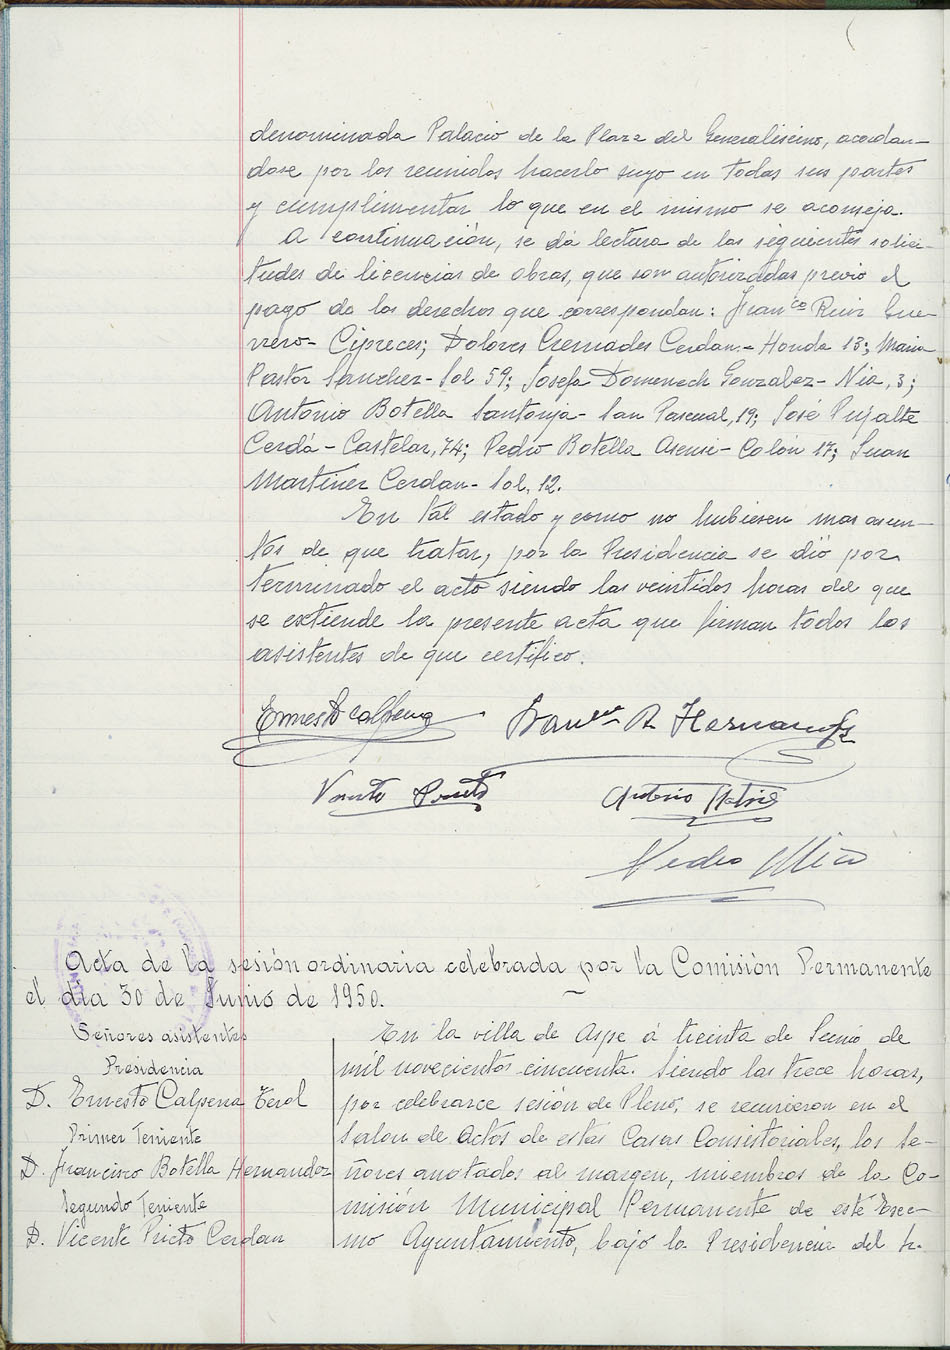 denominada Palacio de la Plaza del Generalísimo, acordan-
dose por los reunidos hacerlo suyo en todas sus partes
y cumplimentar lo que en el mismo se aconseja.
A continuación, se dá lectura de las siguientes solici-
tudes de licencias de obras, que son autorizadas previo el
pago de los derechos que correspondan: Franco Ruiz Gue-
rrero- Cipreces; Dolores Cremades Cerdan.- Honda 13; Maria
Pastor Sanchez- Sol 59; Josefa Domenech Gonzalez- Nia, 3;
Antonio Botella Santonja- San Pascual, 19; José Pujalte
Cerdá- Castelar, 74; Pedro Botella Asensi- Colón 17; Juan
Martinez Cerdan- Sol, 12.
En tal estado y como no hubiesen mas asun-
tos de que tratar, por la Presidencia se dió por
terminado el acto siendo las veintidos horas del que
se extiende la presente acta que firman todos los
asistentes de que certifico.
Ernesto Calpena
Franco B. Hernandez
Vicente Prieto
Antonio
Pedro Mico
Acta de la sesión ordinaria celebrada por la Comisión Permanente
el dia 30 de Junio de 1950.
Señores asistentes
Presidencia
D. Ernesto Calpena Terol
Primer Teniente
D. Francisco Botella Hernandez
Segundo Teniente
D. Vicente Prieto Cerdan
En la villa de Aspe á treinta de Junio de
mil novecientos cincuenta. Siendo las trece horas,
por celebrarse sesión de Pleno, se reunieron en el
Salon de Actos de estas Casas Consistoriales, los Se-
ñores anotados al margen, miembros de la Co-
misión Municipal Permanente de este Exce-
mo Ayuntamiento, bajo la Presidencia del Sr.